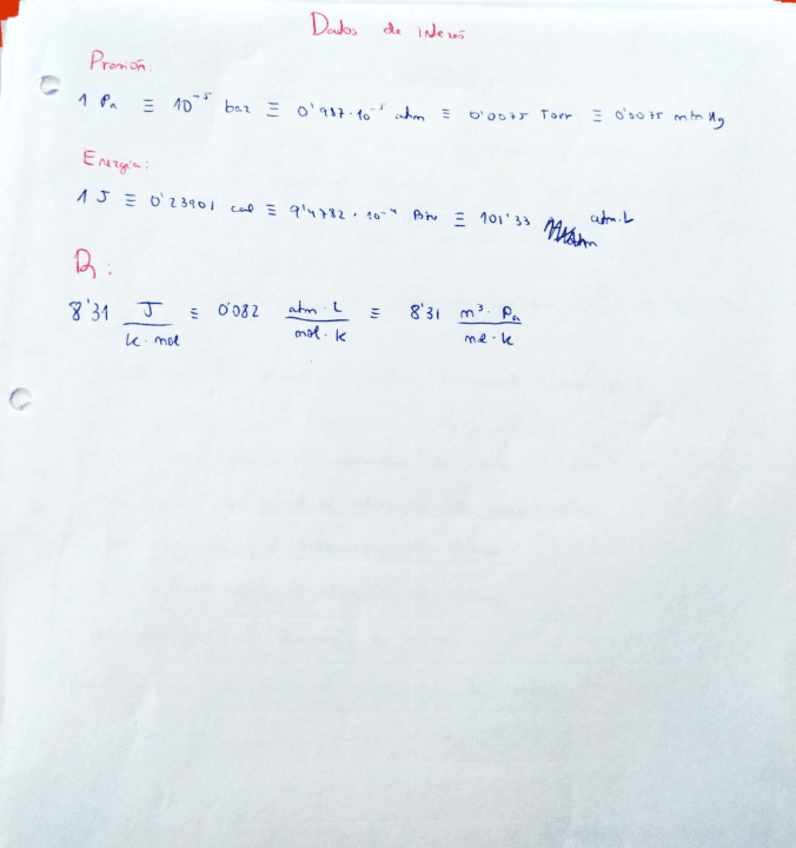 Datos de interés
Presión:
1 Pa ≡ 10⁻⁵ bar ≡ 0'987·10⁻⁵ atm ≡ 0'0075 Torr ≡ 0'0075 mm Hg
Energía:
1 J ≡ 0'23901 cal ≡ 9'4782·10⁻⁴ Btu ≡ 101'33 atm·L
R:
8'31 J / k·mol ≡ 0'082 atm·L / mol·k ≡ 8'31 m³·Pa / mol·k